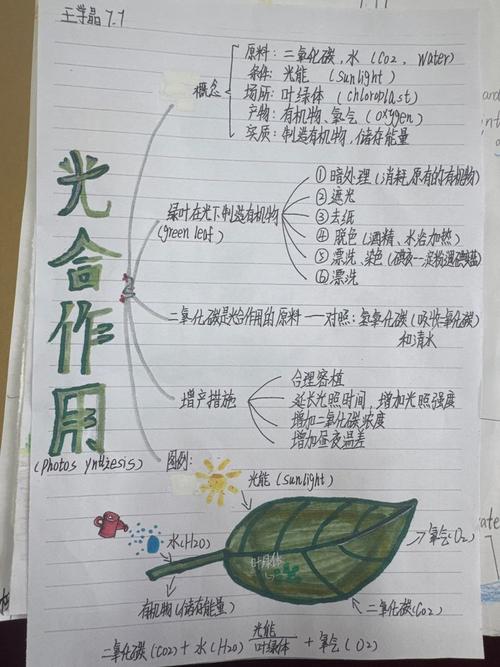 王学晶 7.7
光合作用
(photos ynthzesis)
概念
原料: 二氧化碳,水 (Co2, Water)
条件: 光能 (Sunlight)
场所: 叶绿体 (chloroplast)
产物: 有机物、氧气 (oxygen)
实质: 制造有机物,储存能量
绿叶在光下制造有机物
(green leaf)
① 暗处理 (消耗原有的有机物)
② 遮光
③ 去纸
④ 脱色 (酒精、水浴加热)
⑤ 漂洗、染色 (碘液--淀粉遇碘变蓝)
⑥ 漂洗
二氧化碳是光合作用的原料 — 对照: 氢氧化碳 (吸收二氧化碳)
和清水
增产措施
合理密植
延长光照时间, 增加光照强度
增加二氧化碳浓度
增加昼夜温差
图例:
光能 (sunlight)
水(H2O)
叶绿体
氧气(O2)
有机物 (储存能量)
二氧化碳(Co2)
二氧化碳 (CO2) + 水 (H2O) 光能 + 氧气 (O2)
叶绿体